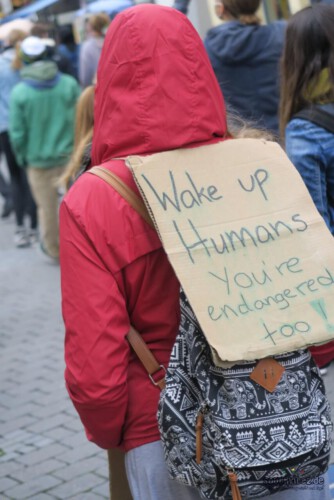 Wake up
Humans
You're
endangered
too!